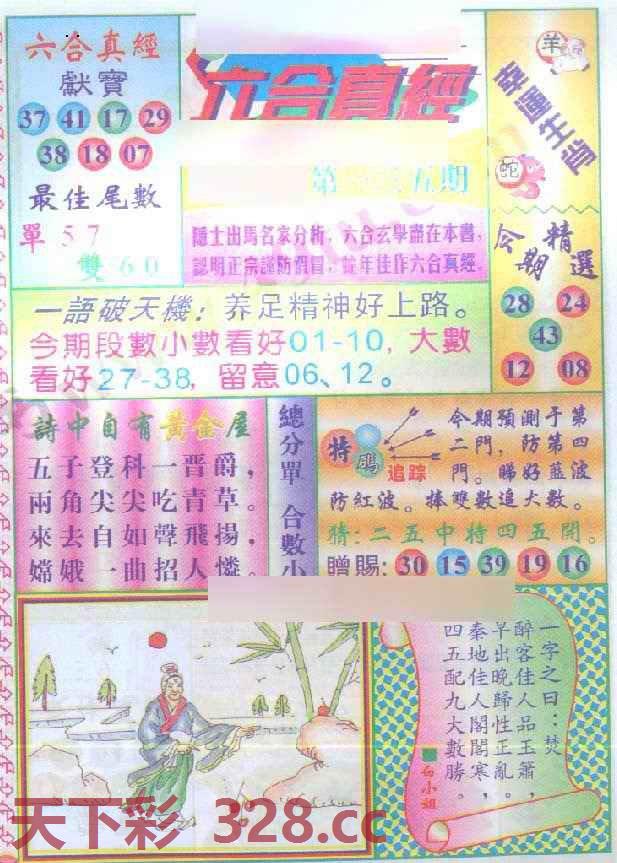 六合真經
獻寶
37 41 17 29
38 18 07
最佳尾數
單57
雙60
六合真經
第 五期
隱士出馬名家分析，六合玄學盡在本書，
認明正宗謹防假冒，蛇年佳作六合真經。
羊
幸運生肖
蛇
今期精選
28 24
43
12 08
一語破天機：養足精神好上路。
今期段數小數看好01-10，大數
看好27-38，留意06、12。
詩中自有黃金屋
五子登科一晋爵，
兩角尖尖吃青草。
來去自如聲飛揚，
嫦娥一曲招人憐。
總分單 合數小
特碼
追踪
今期預測于第
二門，防第四
門。睇好藍波
防紅波。捧雙數追大數。
猜：二五中特四五開。
贈賜：30 15 39 19 16
一字之曰：焚
醉客佳人品玉簫，
早出晚歸性正亂。
秦地佳人閣閣寒，
四五配九大數勝。
白小姐
天下彩 328.cc